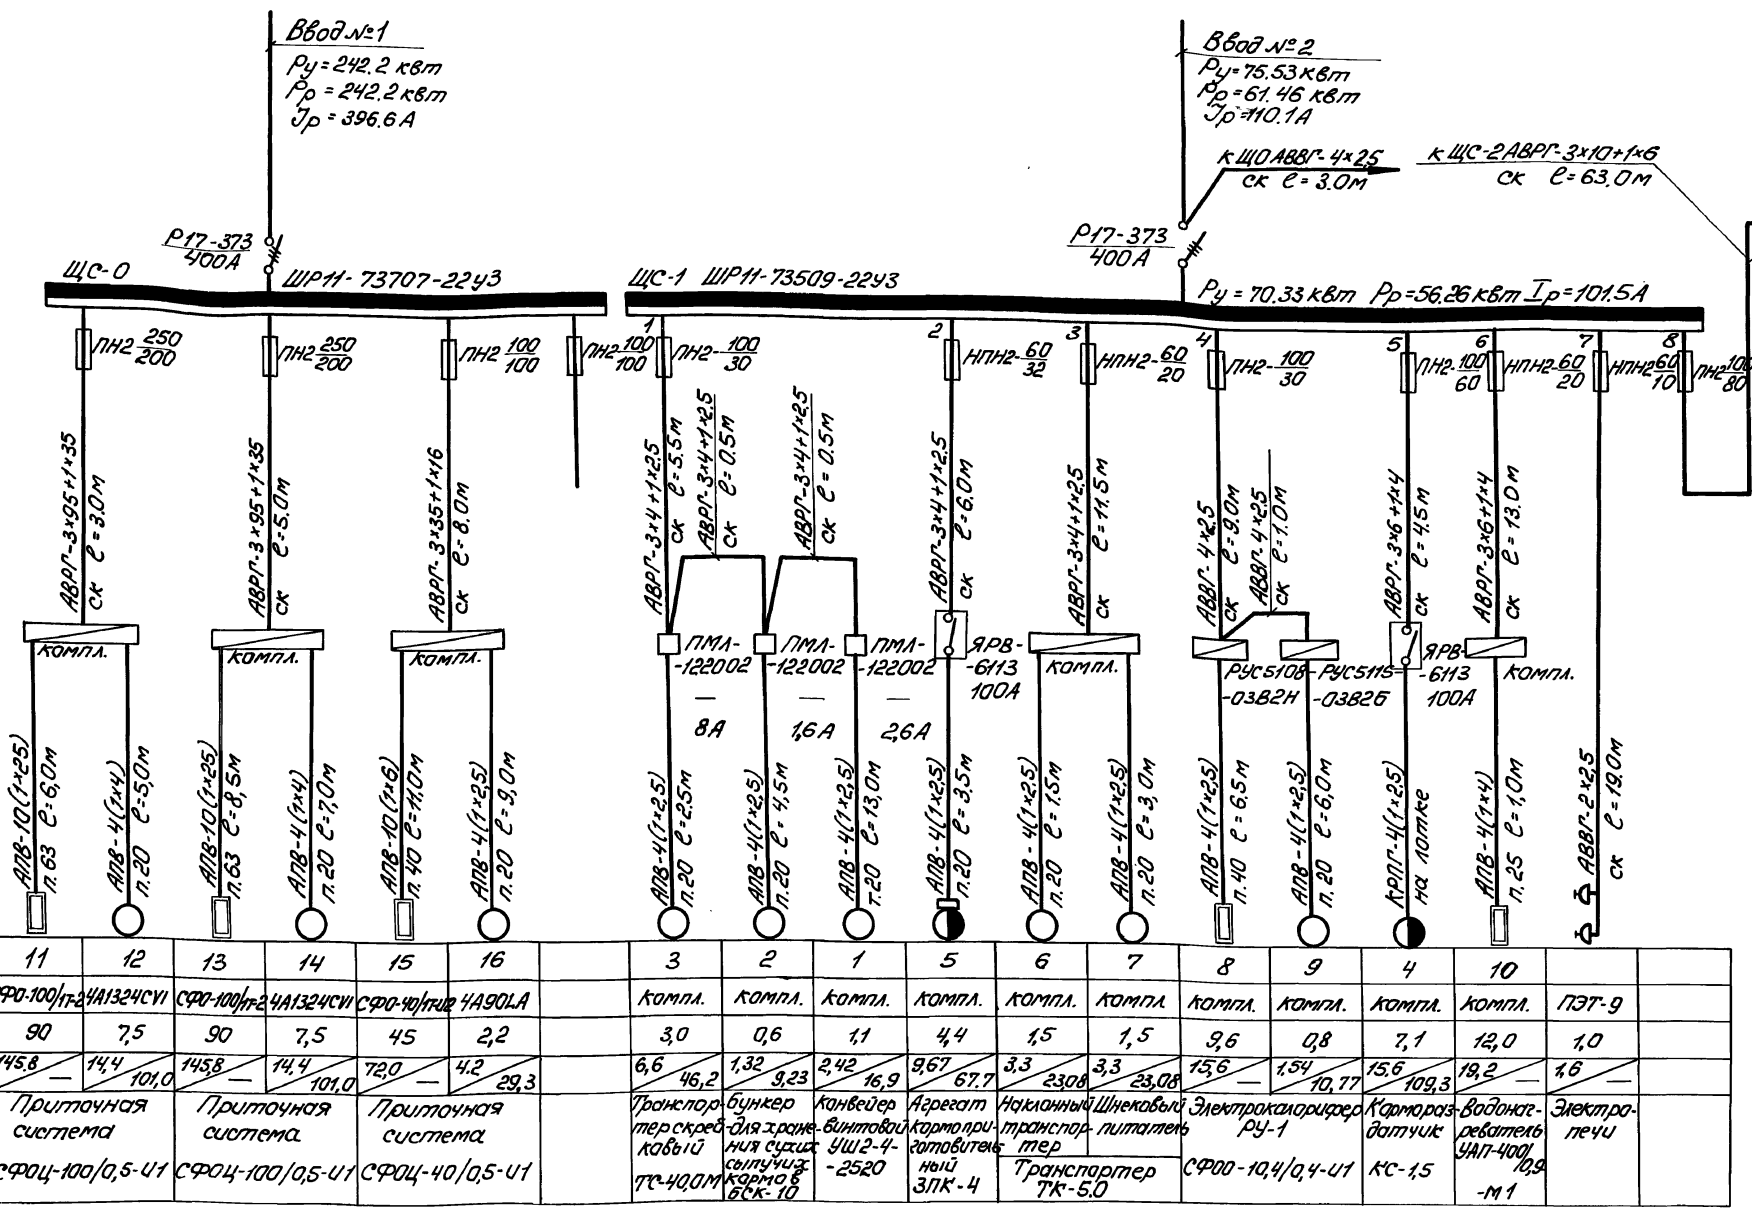 Ввод №1
Ру=242.2 квт
Рр=242.2 квт
Jр=396.6А
Ввод №2
Ру=75.53 квт
Рр=61.46 квт
Jр=110.1А
к ЩО АВВГ-4×2.5
ск ℓ=3.0м
к ЩС-2 АВРГ-3×10+1×6
ск ℓ=63.0м
Р17-373
400А
Р17-373
400А
ЩС-0
ШР11-73707-22У3
ЩС-1 ШР11-73509-22У3
Ру=70.33 квт Рр=56.26 квт Iр=101.5А
1 2 3 4 5 6 7 8
ПН2 250/200
ПН2 250/200
ПН2 100/100
ПН2 100/100
ПН2-100/30
НПН2-60/32
НПН2-60/20
ПН2-100/30
ПН2-100/60
НПН2-60/20
НПН2 60/10
ПН2 100/80
АВРГ-3×95+1×35
ск ℓ=3.0м
АВРГ-3×95+1×35
ск ℓ=5.0м
АВРГ-3×35+1×16
ск ℓ=8.0м
АВРГ-3×4+1×2.5
ск ℓ=5.5м
АВРГ-3×4+1×2.5
ск ℓ=0.5м
АВРГ-3×4+1×2.5
ск ℓ=0.5м
АВРГ-3×4+1×2.5
ск ℓ=6.0м
АВРГ-3×4+1×2.5
ск ℓ=11.5м
АВВГ-4×2.5
ск ℓ=9.0м
АВВГ-4×2.5
ск ℓ=1.0м
АВРГ-3×6+1×4
ск ℓ=4.5м
АВРГ-3×6+1×4
ск ℓ=13.0м
компл.
компл.
компл.
ПМЛ-
-122002
—
8А
ПМЛ-
-122002
—
1,6А
ПМЛ-
-122002
—
2,6А
ЯРВ-
-6113
100А
компл.
РУС5108-
-03В2Н
РУС5115-
-03В2Б
ЯРВ-
-6113
100А
компл.
АПВ-10(1×25)
п.63 ℓ=6,0м
АПВ-4(1×4)
п.20 ℓ=5,0м
АПВ-10(1×25)
п.63 ℓ=8,5м
АПВ-4(1×4)
п.20 ℓ=7,0м
АПВ-10(1×6)
п.40 ℓ=11,0м
АПВ-4(1×2,5)
п.20 ℓ=9,0м
АПВ-4(1×2,5)
п.20 ℓ=2.5м
АПВ-4(1×2,5)
п.20 ℓ=4,5м
АПВ-4(1×2,5)
т.20 ℓ=13,0м
АПВ-4(1×2,5)
п.20 ℓ=3,5м
АПВ-4(1×2,5)
п.20 ℓ=1.5м
АПВ-4(1×2,5)
п.20 ℓ=3,0м
АПВ-4(1×2,5)
п.40 ℓ=6.5м
АПВ-4(1×2,5)
п.20 ℓ=6,0м
КРПГ-4(1×2,5)
на лотке
АПВ-4(1×4)
п.25 ℓ=1,0м
АВВГ-2×2,5
ск ℓ=19.0м
11 12 13 14 15 16 3 2 1 5 6 7 8 9 4 10
СФО-100/1т-2 4А1324СУ1 СФО-100/1т-2 4А1324СУ1 4А90LА компл. компл. компл. компл. компл. компл. компл. компл. компл. компл. ПЭТ-9
90 7,5 90 7,5 45 2,2 3,0 0,6 1,1 4,4 1,5 1,5 9,6 0,8 7,1 12,0 1,0
145.8/— 14,4/101,0 145,8/— 14.4/101,0 72,0/— 4.2/29,3 6,6/46,2 1,32/9,23 2,42/16,9 9,67/67.7 3,3/23,08 3,3/23,08 15,6/— 1.54/10,77 15.6/109,3 19,2/— 1,6/—
Приточная
система
СФОЦ-100/0,5-И1
Приточная
система
СФОЦ-100/0,5-И1
Приточная
система
СФОЦ-40/0,5-И1
Транспор-
тер скреб-
ковый
ТС-40,0М
Бункер
для хране-
ния сухих
сыпучих
кормов
БСК-10
Конвейер
винтовой
УШ2-4-
-2520
Агрегат
кормопри-
готовитель-
ный
ЗПК-4
Наклонный
транспор-
тер
Шнековый
питатель
Транспортер
ТК-5.0
Электрокалорифер
РУ-1
СФОО-10,4/0,4-И1
Кормораз-
датчик
КС-1,5
Водонаг-
реватель
УАП-400/0,9
-М1
Электро-
печи